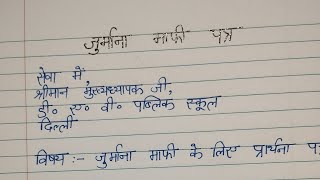 जुर्माना माफी पत्र
सेवा में,
श्रीमान मुख्यध्यापक जी,
डी० ए० वी० पब्लिक स्कूल
दिल्ली
विषय :- जुर्माना माफी के लिए प्रार्थना